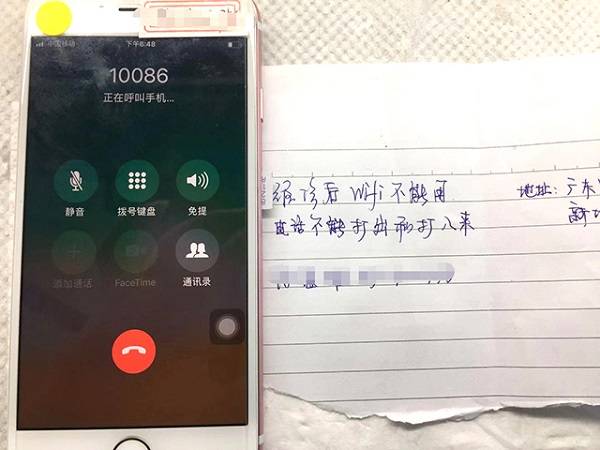 中国移动
下午6:48
10086
正在呼叫手机...
静音
拨号键盘
免提
添加通话
FaceTime
通讯录
后 Wifi 不能用
电话不能打出和打入来
地址: 广东